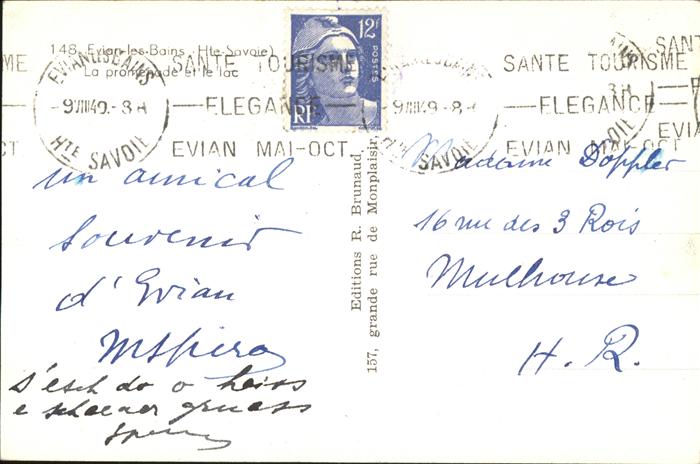 148. Evian-les-Bains (Hte-Savoie)
La promenade et le lac
12F
POSTES
RF
EVIAN LES BAINS
-9VIII49.-8H
Hte SAVOIE
SANTE TOURISME
ELEGANCE
EVIAN MAI-OCT
EVIAN LES BAINS
-9VIII49-8H
Hte SAVOIE
SANTE TOURISME
ELEGANCE
EVIAN MAI-OCT
un amical
souvenir
d'Evian
MSpira
s'esch do o heiss
e schoener gruess
Editions R. Brunaud,
157, grande rue de Monplaisir
Madame Doppler
16 rue des 3 Rois
Mulhouse
H. R.